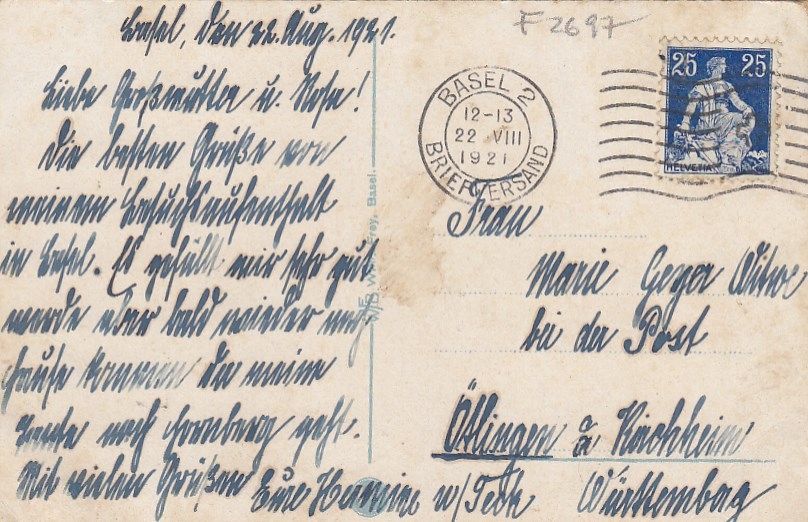 F2697
Basel, den 22. Aug. 1921.
Liebe Großmutter u. Rosa!
Die besten Grüße von
meinem Besuchsaufenthalt
in Basel. Es gefällt mir sehr gut
werde aber bald wieder nach
Hause kommen da meine
nach Hornberg geht.
Mit vielen Grüßen Eure Hermine
W. Frey, Basel.
BASEL 2
12-13
22 VIII
1921
BRIEFVERSAND
25 25
HELVETIA
Frau
Marie Geyer Witwe
bei der Post
Ötlingen a Kirchheim
u/Teck Württemberg